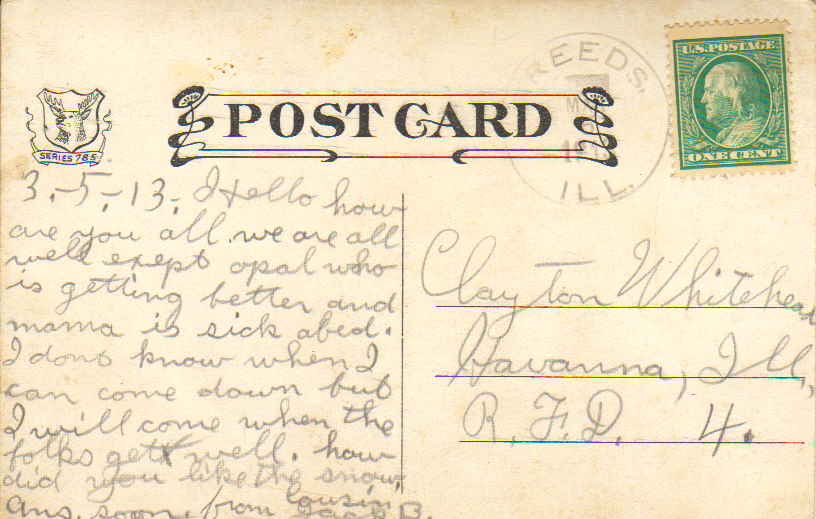 REEDS, ILL.
U.S. POSTAGE
ONE CENT
SERIES 785
POST CARD
3,-5,-13, Hello how
are you all. we are all
well exept opal who
is getting better and
mama is sick abed.
I dont know when I
can come down but
I will come when the
folks get well. how
did you like the snow.
ans. soon. from cousin
B.
Clayton Whitehead
Havanna, Ill,
R.F.D. 4.